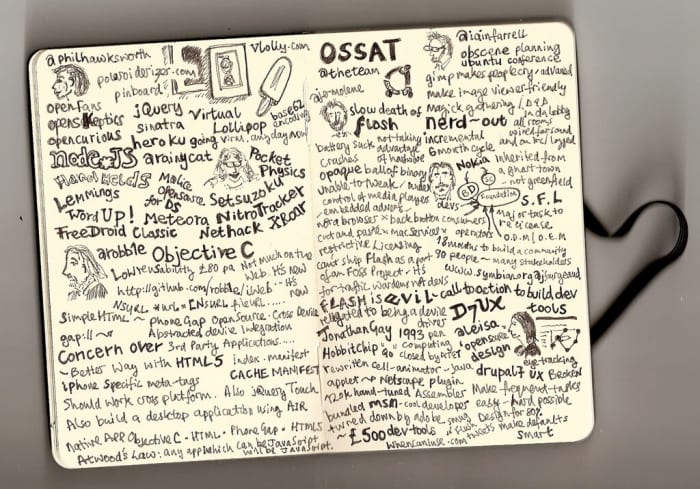 @philhawksworth
vlolly.com
polaroidorizer.com
pinboard
openfans
open skeptics
opencurious
jQuery
Sinatra
heroku
Virtual
Lollipop
going viral, any day now
base62
encoding
node JS
arainycat
Pocket
Physics
Hand Helds
Lemmings
Malice
opensource
for DS
Setsuzoku
Word Up!
Meteora
NitroTracker
FreeDroid Classic
Nethack
Xrar
arobble
Objective C
Low Versability £80 pa Not Much on the
Web. It's now
http://github.com/robble/iWeb - It's
now
NSURL *url = [NSURL fileURL.....
SimpleHTML ~ phone Gap OpenSource. Cross Device
gap:// ~
Abstracted device Integration
Concern over 3rd Party Applications....
~ Better Way with HTML5 index.manifest
CACHE MANIFEST
iphone Specific meta-tags
Should work cross platform. Also jQuery Touch
Also build a desktop application using AIR
Native App Objective C - HTML. Phone Gap = HTML5
Atwood's Law: any app which can be JavaScript
will be JavaScript.
OSSAT
@theteam
slow death of
flash
battery suck
crashes
not taking
advantage
of hardware
opaque ball of binary
unable to tweak/
control of media players
/ embedded adverts
nerd browser * back button consumers
cut and paste * mac services
operators
restrictive licensing
cant ship Flash as a part
of an FOSS Project. It's
for traffic wardens not devs
FLASH is evil - call to action to build dev
tools
relegated to being a device
driver
Jonathan Gay 1993 pen
Computing
Hobbit chip go closed by AT&T
rewritten cell-animator ~ Java
applet ~ Netscape plugin
120k hand-tuned Assembler
bundled msn - cool developer
~ £500 dev-tools
whencaniuse.com
@iainfarrell
obscene planning
ubuntu conference
gimp makes people cry - advanced
make image viewer friendly
magick gathering / D&D
in da lobby
nerd~out
all rooms
wired for sound
and on irc / logged
incremental
6 month cycle
Nokia
inherited from
a ghost town
- not greenfield
devs
Foundation
S.F.L
major task to
re license
O.D.M / O.E.M
18 months to build a community
90 people ~ many stakeholders
www.symbian.org
D7UX
@leisa
opensource
design
eye-tracking
drupal7 UX Broken
Make frequent tasks
easy - hard possible
Design for 80%
make defaults
smart